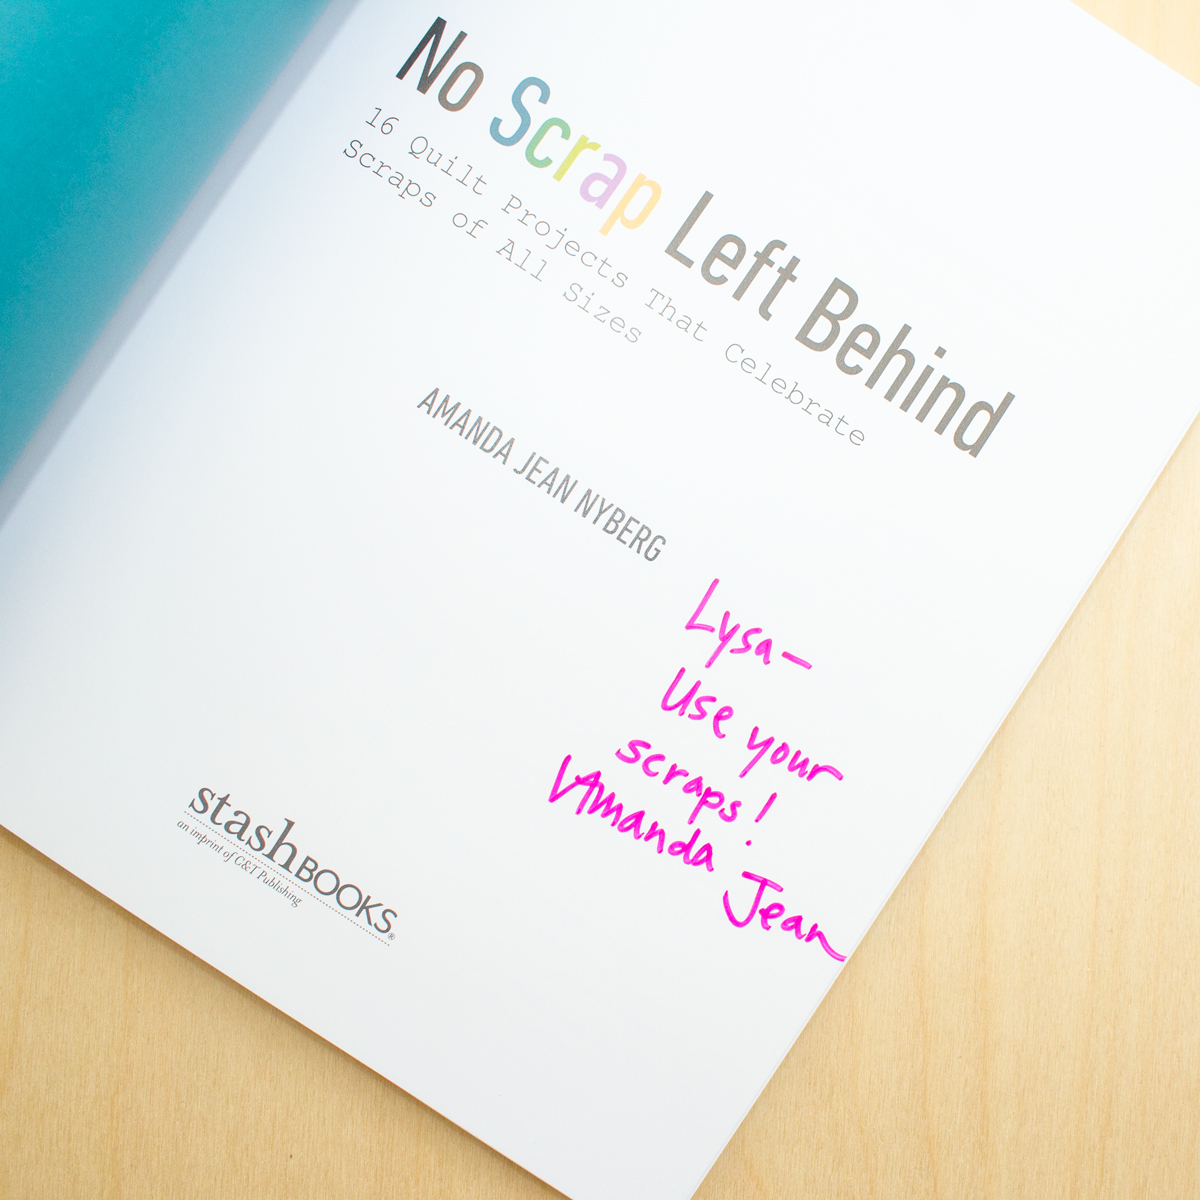 No Scrap Left Behind
16 Quilt Projects That Celebrate
Scraps of All Sizes
AMANDA JEAN NYBERG
Lysa—
Use your
scraps!
Amanda
Jean
stashBOOKS®
an imprint of C&T Publishing